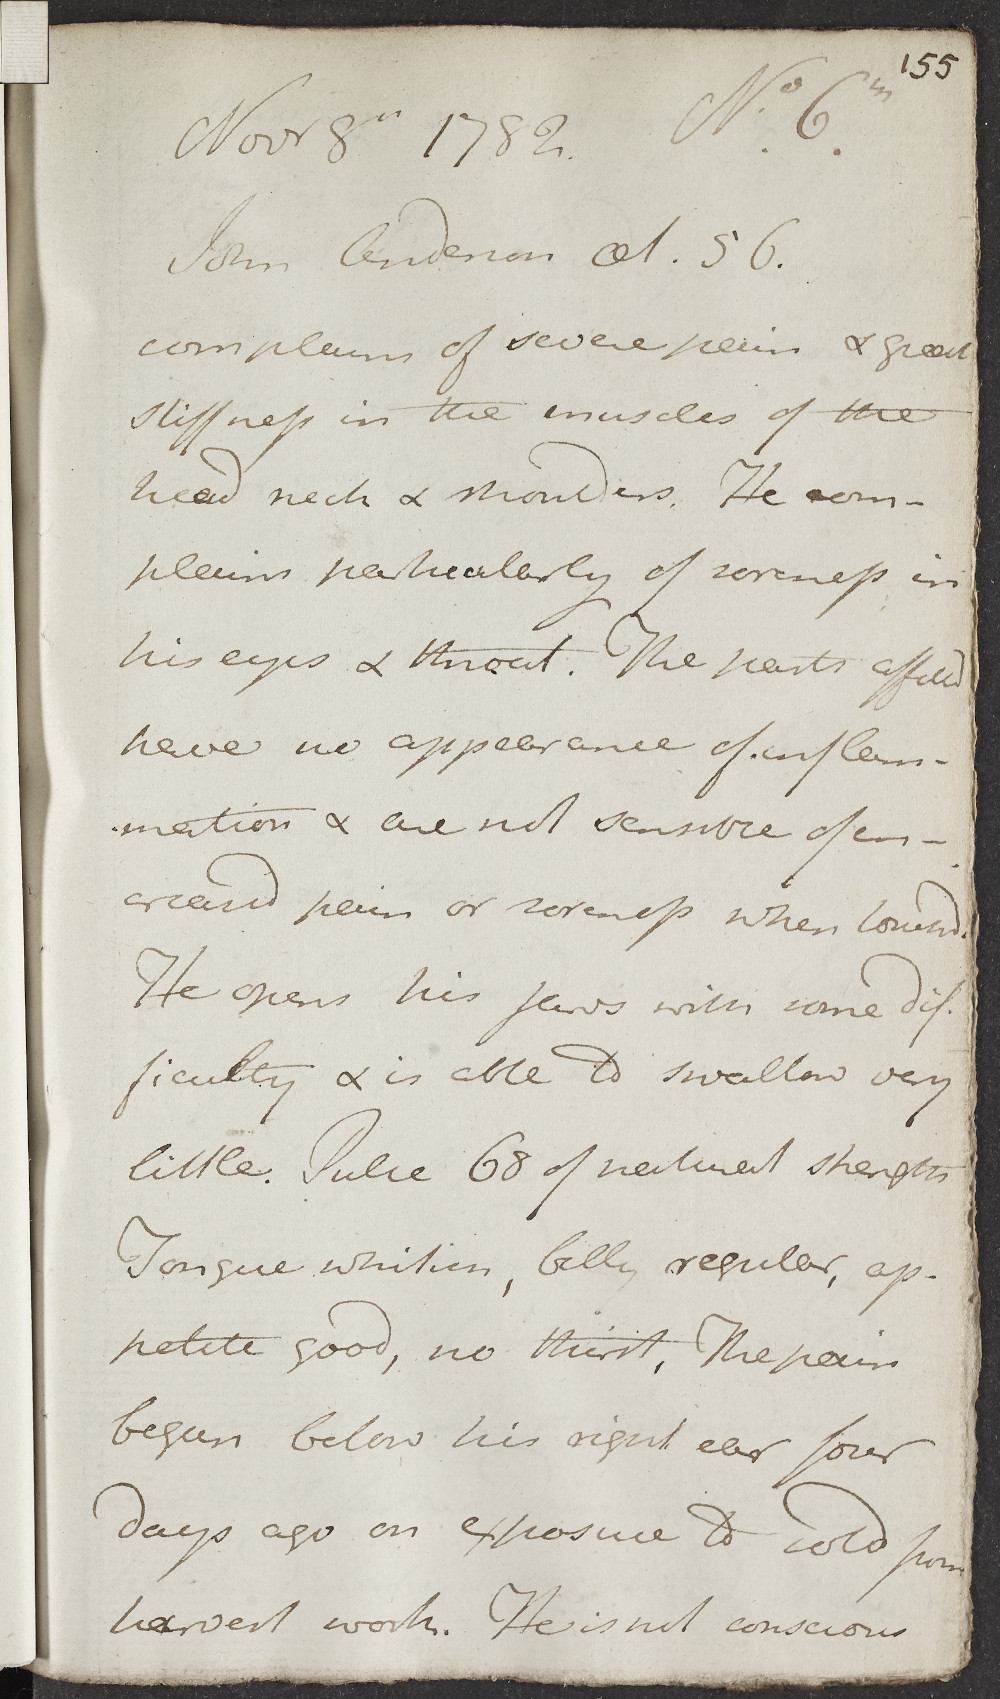 155
Novr 8th 1782. No. 6.
John Anderson æt. 56.
complains of severe pain & great
stiffness in the muscles of the
head neck & shoulders. He com-
plains particularly of soreness in
his eyes & throat. The parts affectd
have no appearance of inflam-
mation & are not sensible of in-
creased pain or soreness when touched.
He opens his jaws with some dif-
ficulty & is able to swallow very
little. Pulse 68 of natural strength
Tongue whitish, belly regular, ap-
petite good, no thirst, The pain
began below his right ear four
days ago on exposure to cold from
harvest work. He is not conscious